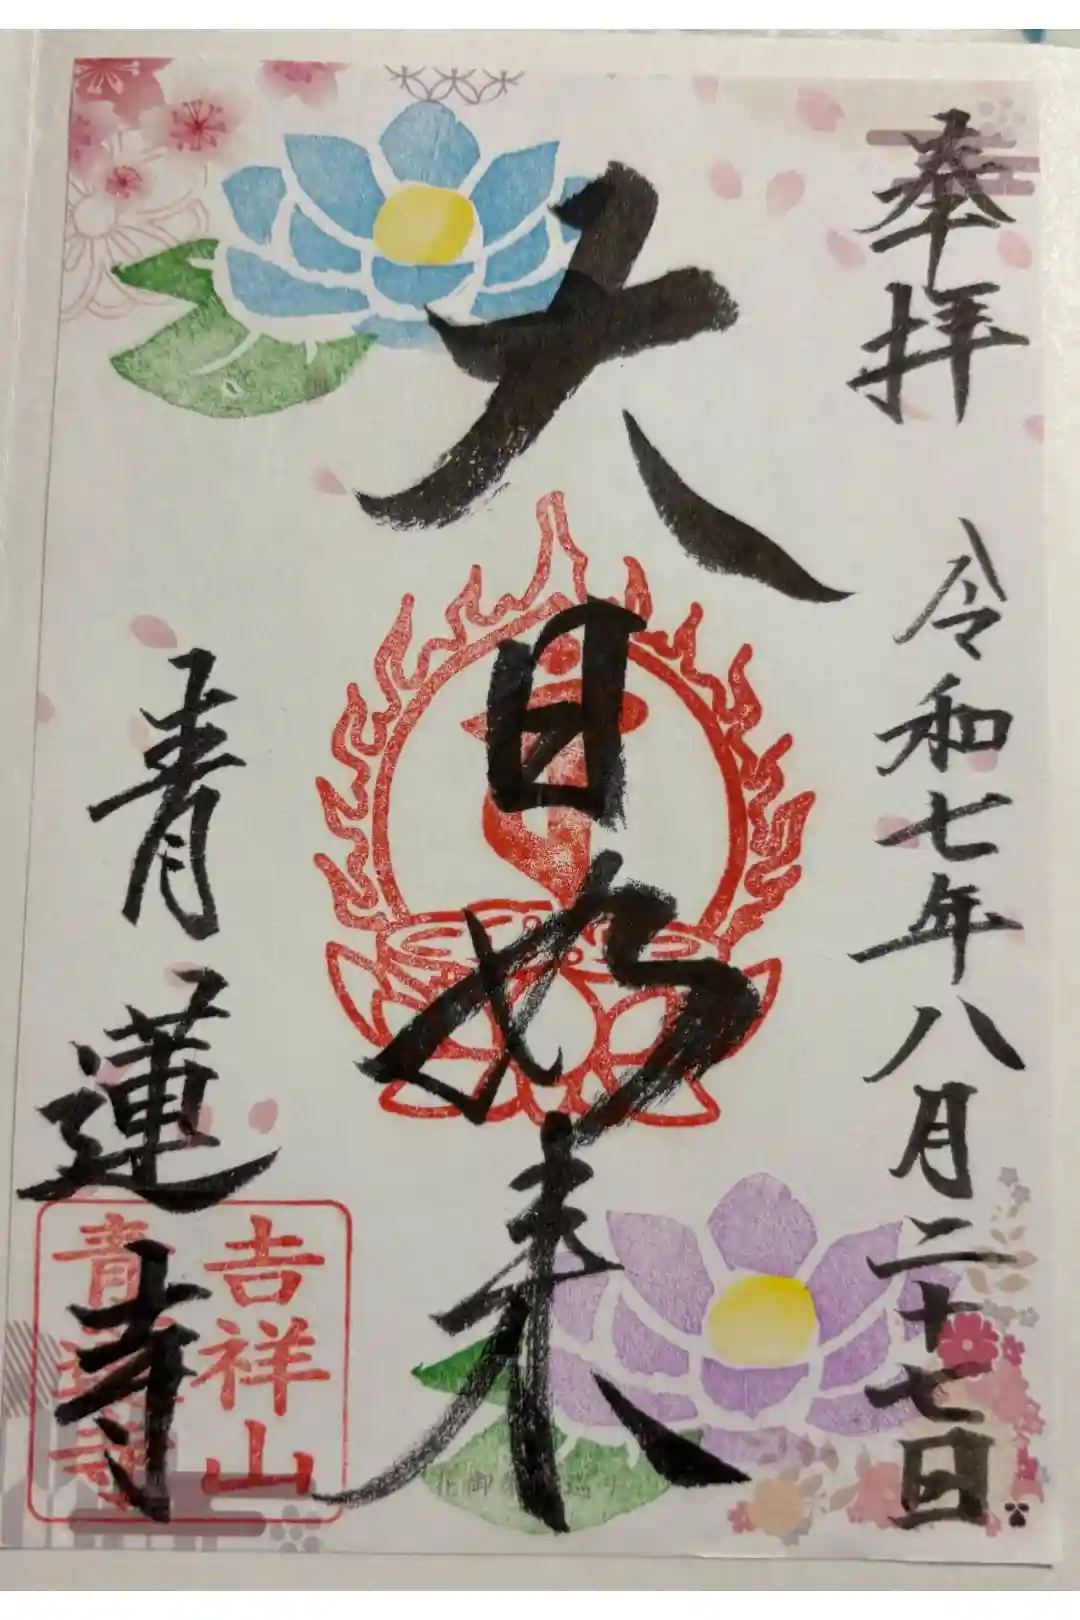 奉拝
令和七年八月二十七日
大日如来
青蓮寺
吉祥山
青蓮寺